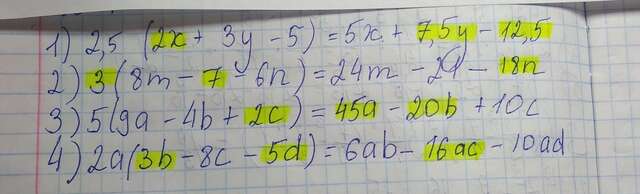 1) 2,5 (2x + 3y - 5) = 5x + 7,5y - 12,5
2) 3(8m - 7 - 6n) = 24m - 21 - 18n
3) 5(9a - 4b + 2c) = 45a - 20b + 10c
4) 2a(3b - 8c - 5d) = 6ab - 16ac - 10ad